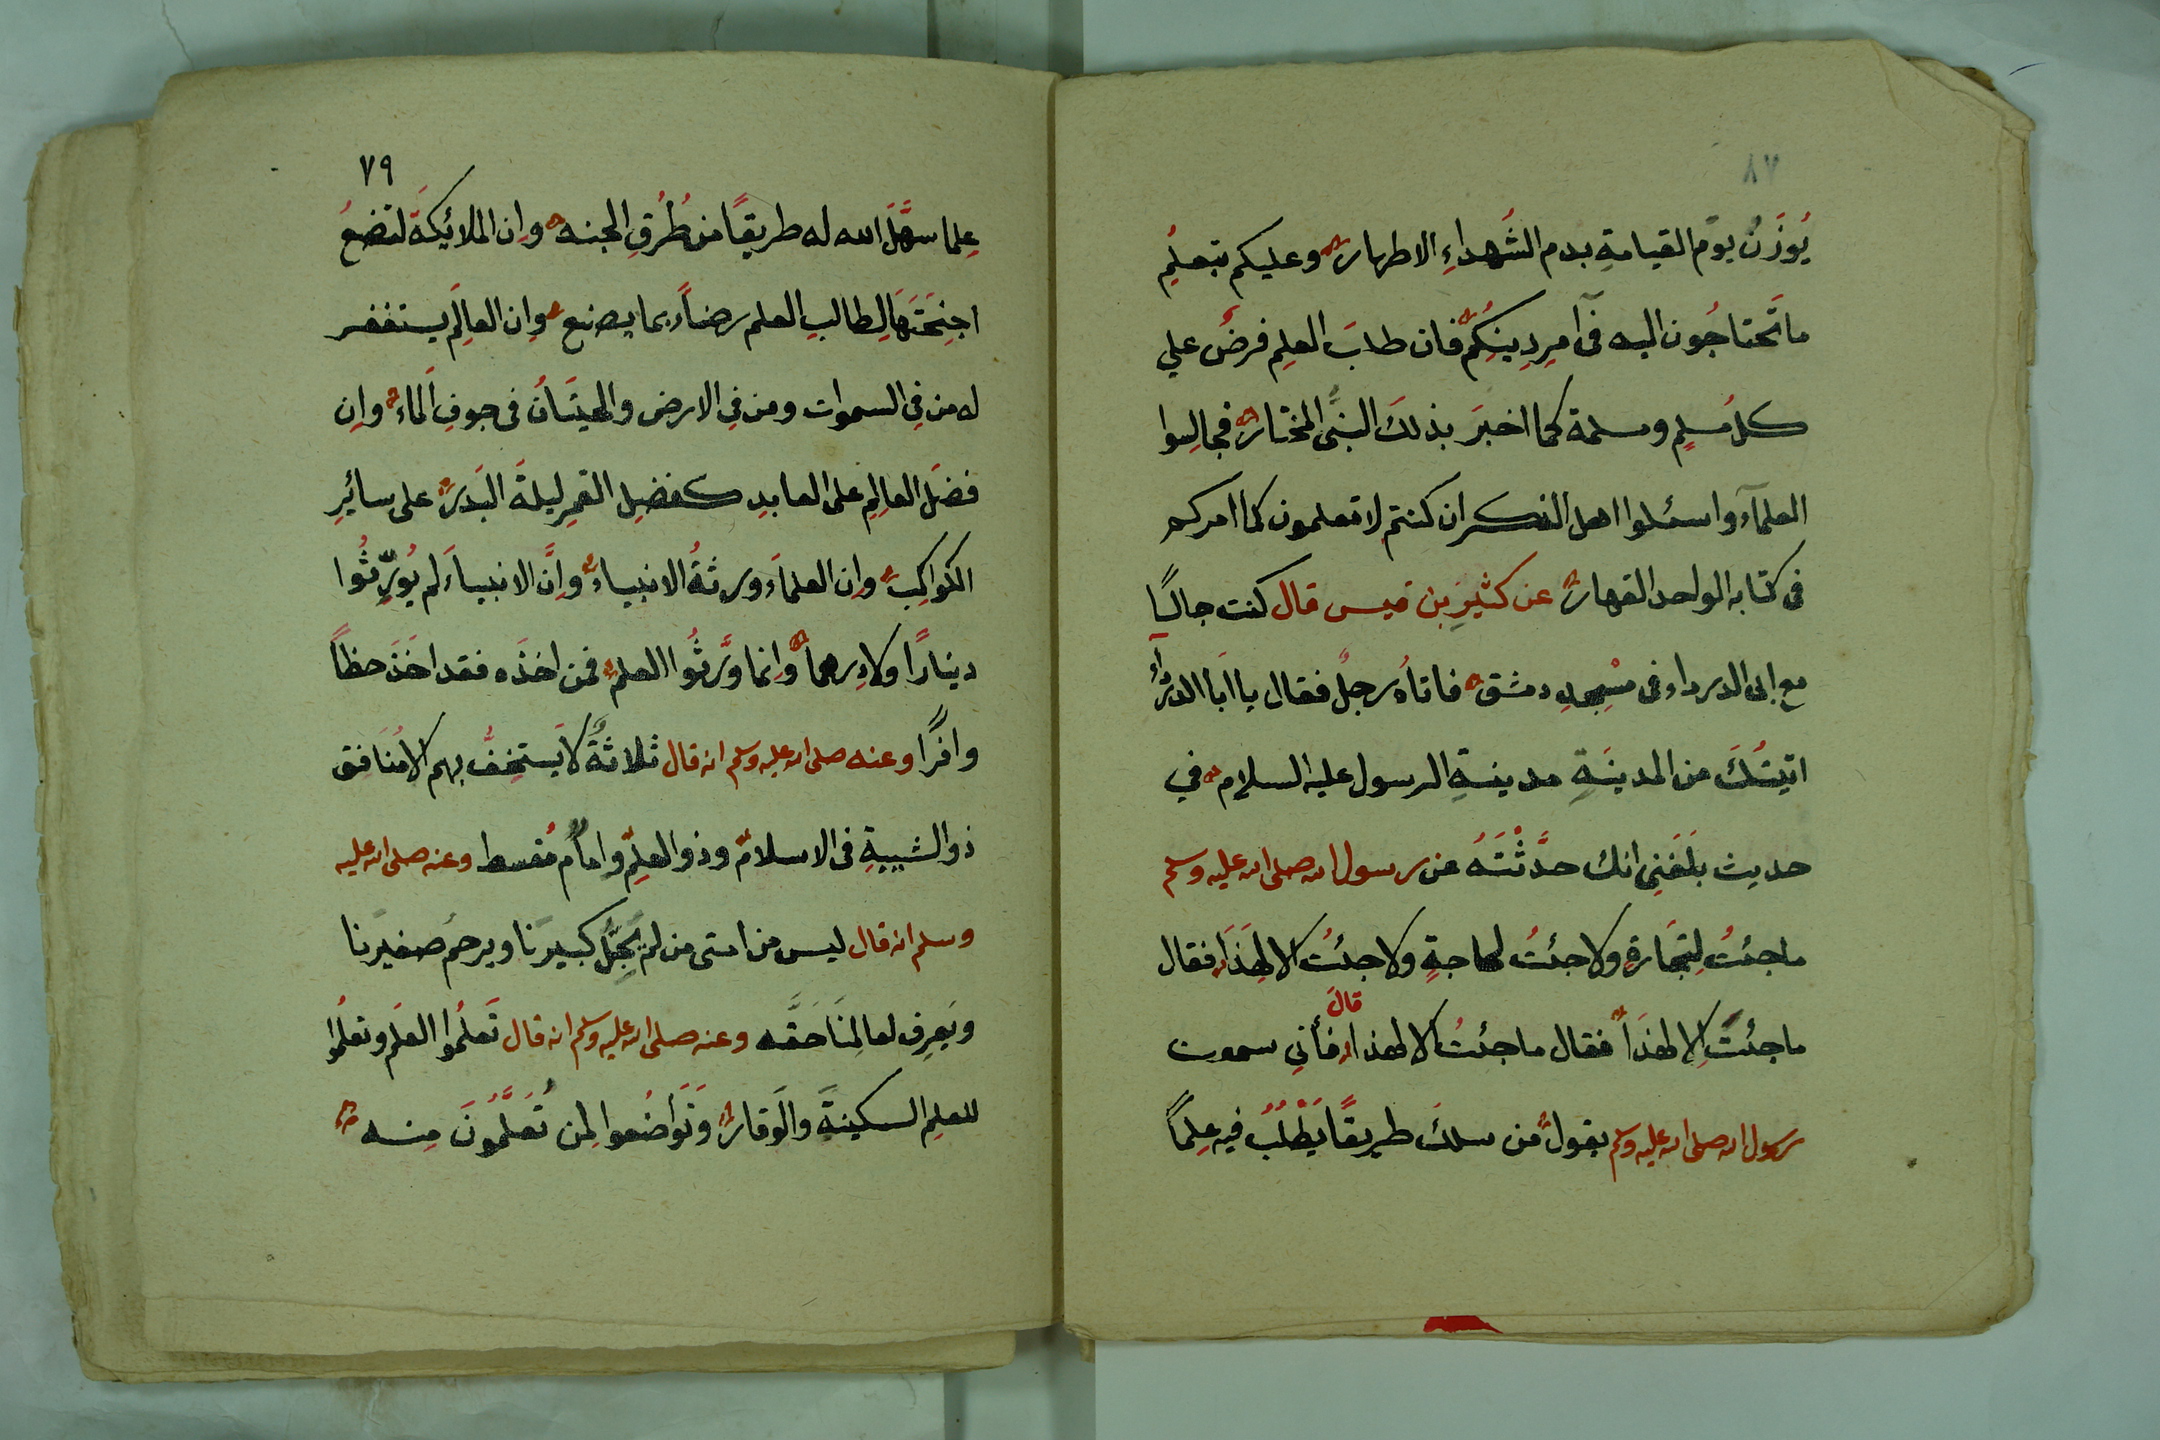 ٧٨
يُوزَنُ يوم القيامةِ بدم الشُهداءِ الاطهار وعليكم بتعليمِ
ما تَحتاجُون اليه فى آمرِ دِينِكُم فان طلبَ العلمِ فرضٌ علي
كل مُسلمٍ ومسلمة كما اخبرَ بذلكَ النبىُّ المختار فجالِسوا
العلمآء واسئلوا اهل الذكر ان كنتم لا تعلمون كما امركم
فى كتابه الواحد القهار عن كثيرِ بن قيس قال كنت جالسًا
مع ابى الدرداء فى مسْجِدِ دمشق فاتاه رجلٌ فقال يا ابَا الدردآء
اتيتُكَ من المدينَةِ مدينةِ الرسول عليه السلام في
حديث بلَغنِى انك حدَّثْتَهُ عن رسول الله صلى الله عليه وسلم
ما جئتُ لِتجَارةٍ ولا جئتُ لحاجةٍ ولا جئتُ الا لِهَذَا فقال
ما جئتَ الا لهذَا فقال ما جئتُ الا لهذا قالَ فأني سمعت
رسول الله صلى الله عليه وسلم يقول من سلكَ طريقًا يَطْلُبُ فيه عِلماً
٧٩
عِلما سهَّلَ الله له طريقًا من طُرُقِ الجنه وإن الملائِكةَ لتضعُ
اجنِحَتَهَا لِطالبِ العلم رضاً بما يصنع وإن العالِمَ يستغفر
له من فِي السموات ومن فِي الارض والحيتَانُ فى جوفِ الماء وإن
فضلَ العالِمِ على العابدِ كفضلِ القمرِ ليلةَ البَدر على سائِرِ
الكواكِبِ وإن العلمآءَ ورثةُ الانبياء وإنَّ الانبياءَ لم يُورِّثُوا
دينارًا ولا دِرهماً وإنما ورَّثُوا العلم فمن اخذَه فقد اخَذَ حظاً
وافرًا وعنه صلى الله عليه وسلم انه قال ثلاثةٌ لا يَستخِفُّ بهم الا مُنَافق
ذو الشيبةِ فى الاسلام وذو العلمِ وامامٌ مُقسط وعنه صلى الله عليه
وسلم انه قال ليس من امتى من لم يُجِلَّ كبيرَنا ويرحمُ صغيرَنا
ويَعرِف لعالِمنَا حَقَّه وعنه صلى الله عليه وسلم انه قال تَعلمُوا العَلم وتعلمُوا
للعلمِ السكينةَ والَوقار وَتَواضَعوا لِمن تُعَلَّمُونَ مِنه